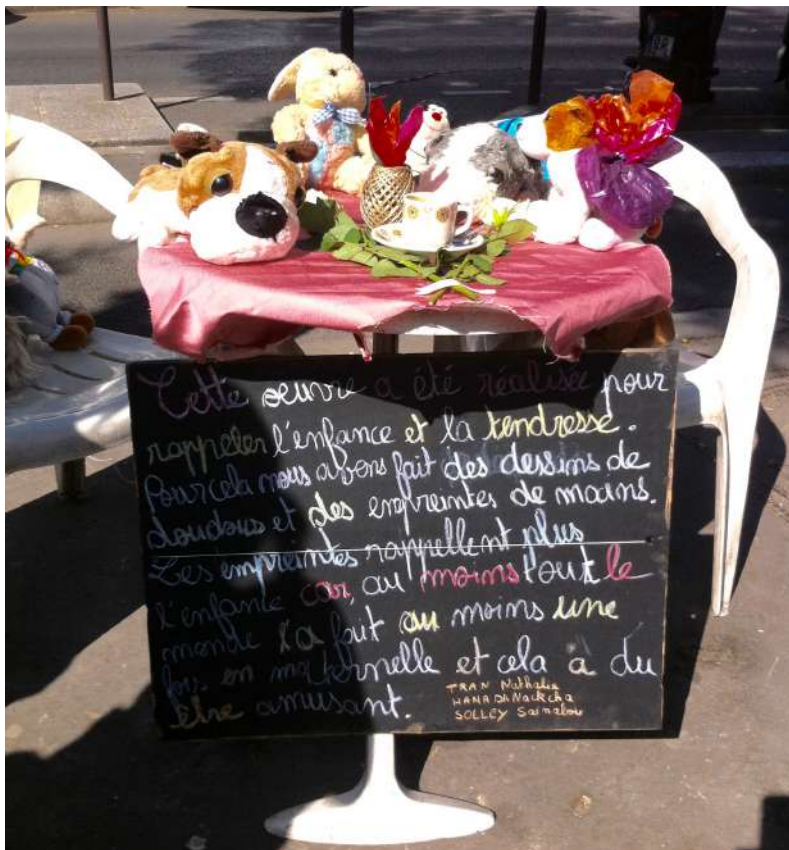 Cette œuvre a été réalisée pour
rappeler l'enfance et la tendresse.
Pour cela nous avons fait des dessins de
doudous et des empreintes de mains.
Les empreintes rappellent plus
l'enfance car, au moins tout le
monde l'a fait au moins une
fois en maternelle et cela à du
être amusant.
TRAN Nathalie
HANADA Nackcha
SOLLEY Sainabou